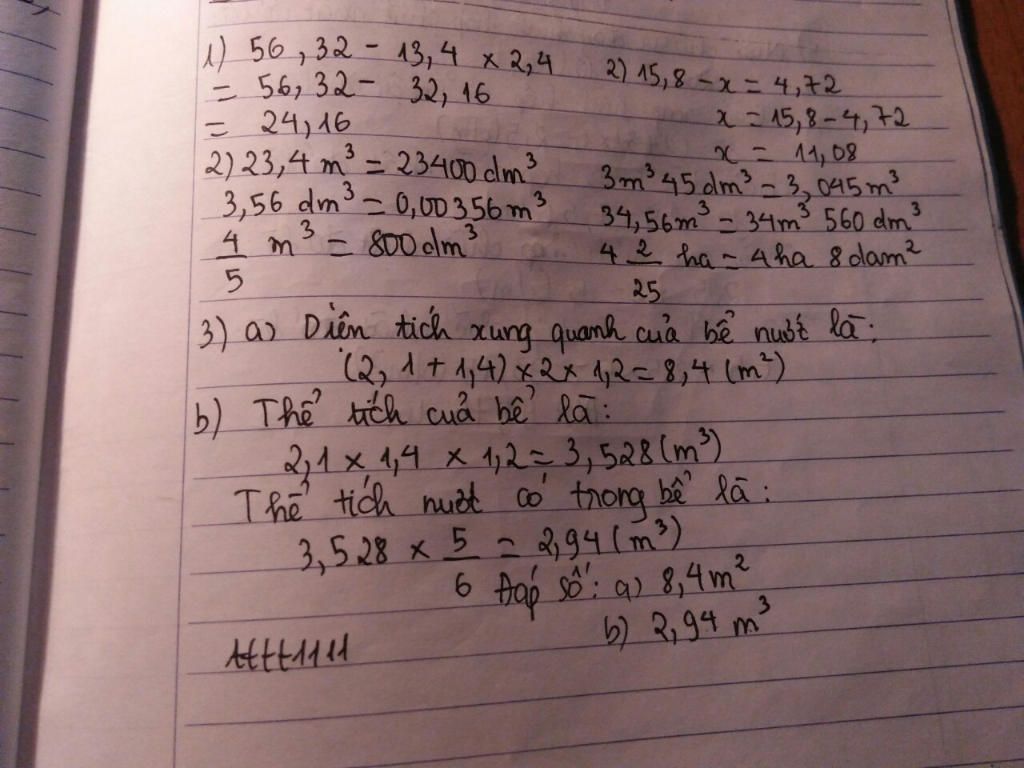 1) 56,32 - 13,4 × 2,4
= 56,32 - 32,16
= 24,16
2) 15,8 - x = 4,72
x = 15,8 - 4,72
x = 11,08
2) 23,4 m³ = 23400 dm³
3,56 dm³ = 0,00356 m³
4/5 m³ = 800 dm³
3m³ 45 dm³ = 3,045 m³
34,56 m³ = 34m³ 560 dm³
4 2/25 ha = 4 ha 8 dam²
3) a) Diện tích xung quanh của bể nước là:
(2,1 + 1,4) × 2 × 1,2 = 8,4 (m²)
b) Thể tích của bể là:
2,1 × 1,4 × 1,2 = 3,528 (m³)
Thể tích nước có trong bể là:
3,528 × 5/6 = 2,94 (m³)
Đáp số: a) 8,4 m²
b) 2,94 m³